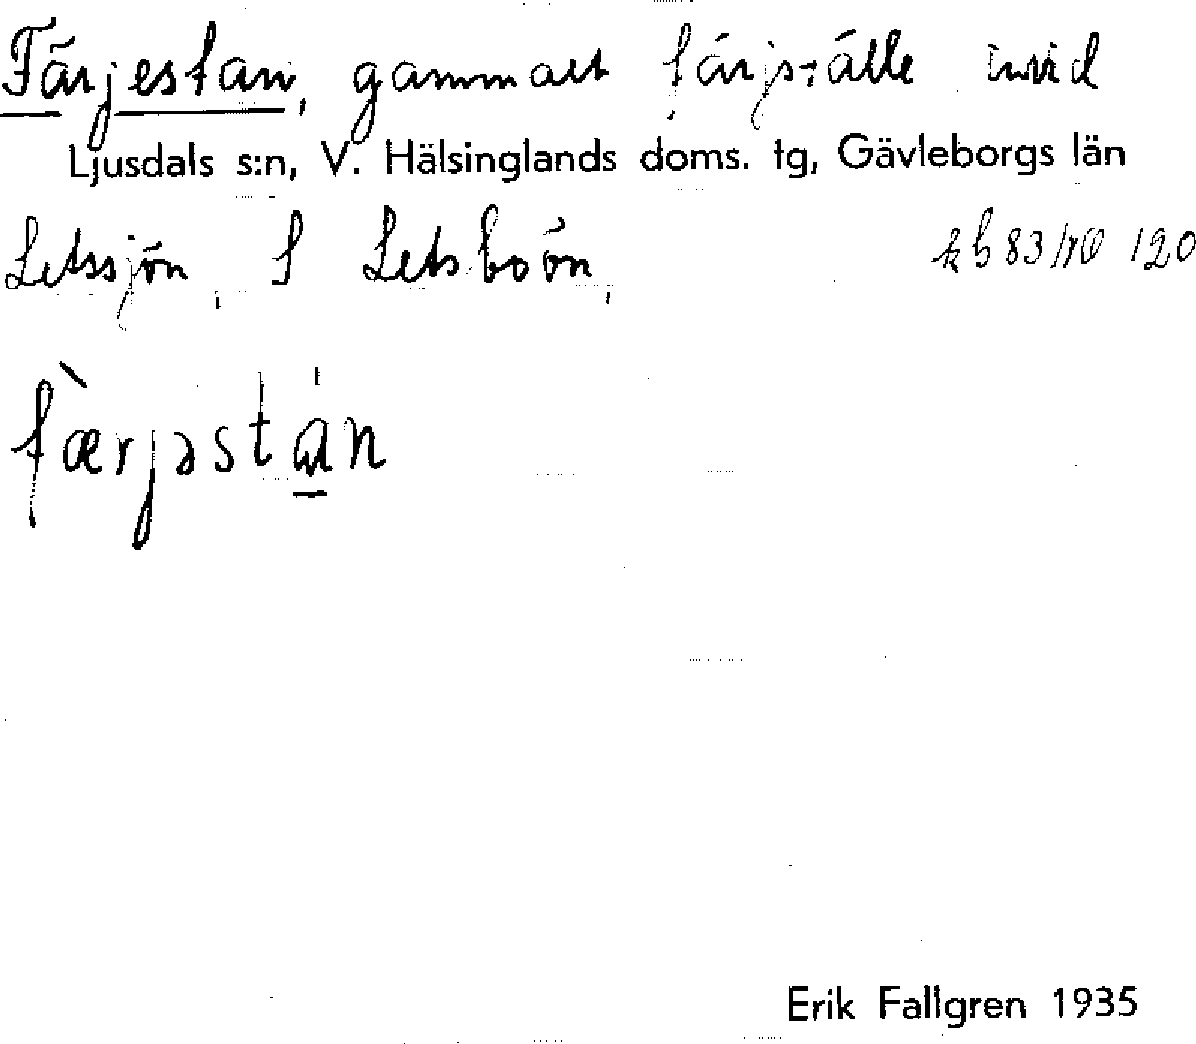 Färjestan, gammalt färjställe invid
Ljusdals s:n, V. Hälsinglands doms. tg, Gävleborgs län
Letssjön, S Letsboön, kb 83/70 120
færjəstan
Erik Fallgren 1935